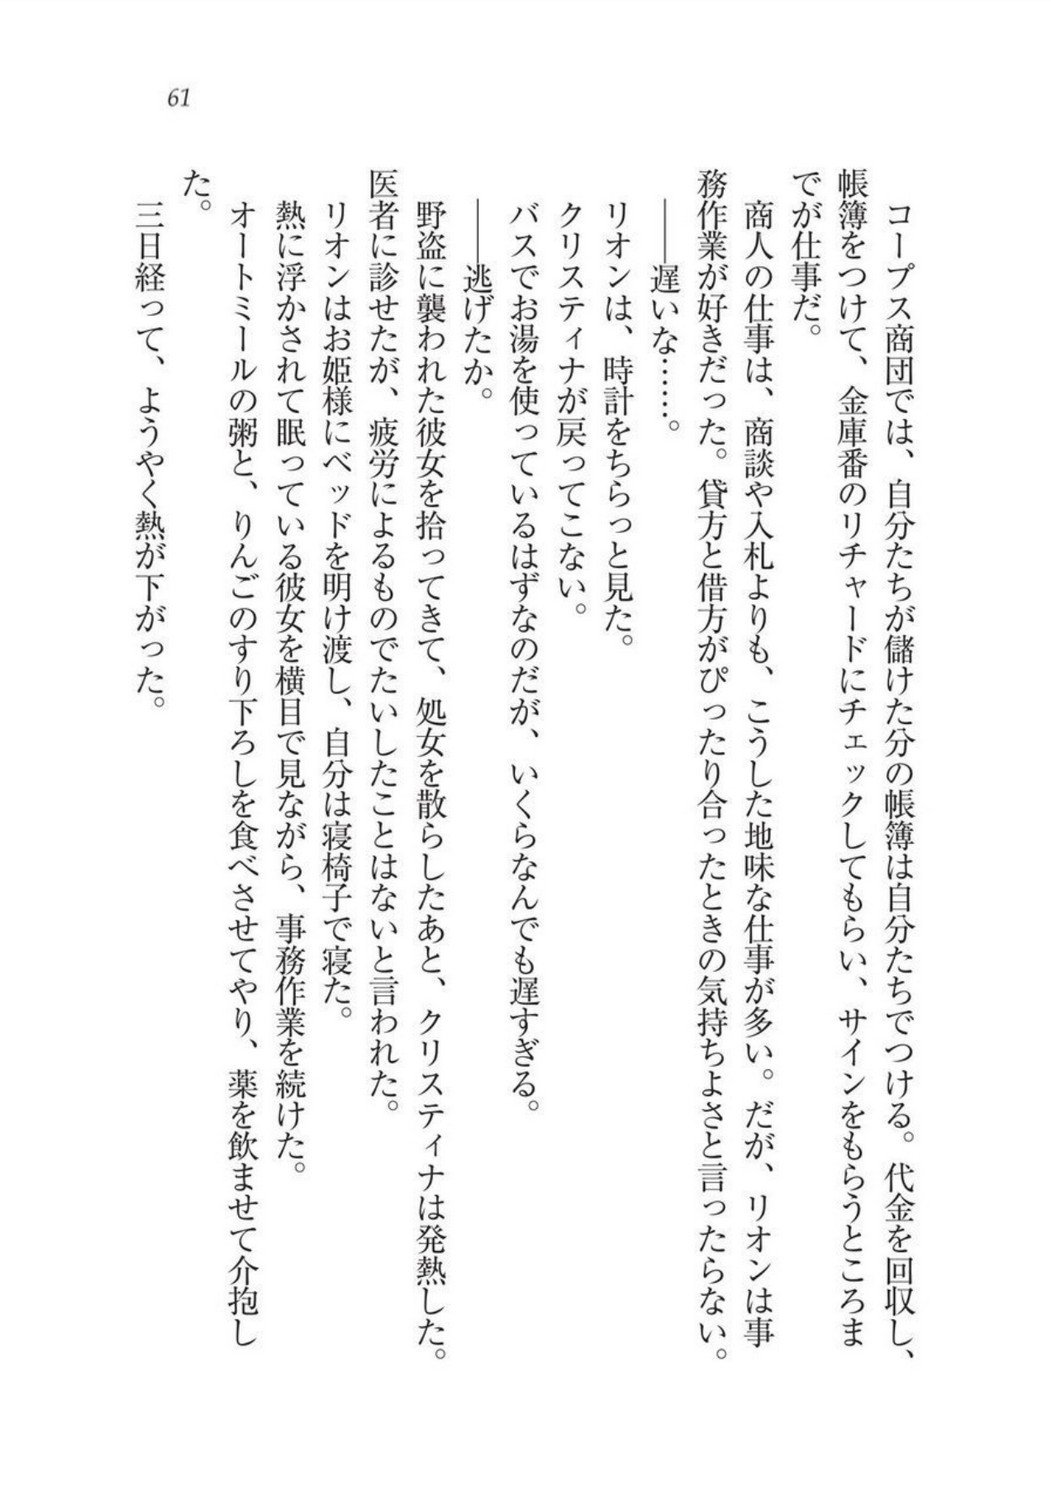 61
コープス商団では、自分たちが儲けた分の帳簿は自分たちでつける。代金を回収し、
帳簿をつけて、金庫番のリチャードにチェックしてもらい、サインをもらうところま
でが仕事だ。
商人の仕事は、商談や入札よりも、こうした地味な仕事が多い。だが、リオンは事
務作業が好きだった。貸方と借方がぴったり合ったときの気持ちよさと言ったらない。
――遅いな……。
リオンは、時計をちらっと見た。
クリスティナが戻ってこない。
バスでお湯を使っているはずなのだが、いくらなんでも遅すぎる。
――逃げたか。
野盗に襲われた彼女を拾ってきて、処女を散らしたあと、クリスティナは発熱した。
医者に診せたが、疲労によるものでたいしたことはないと言われた。
リオンはお姫様にベッドを明け渡し、自分は寝椅子で寝た。
熱に浮かされて眠っている彼女を横目で見ながら、事務作業を続けた。
オートミールの粥と、りんごのすり下ろしを食べさせてやり、薬を飲ませて介抱し
た。
三日経って、ようやく熱が下がった。